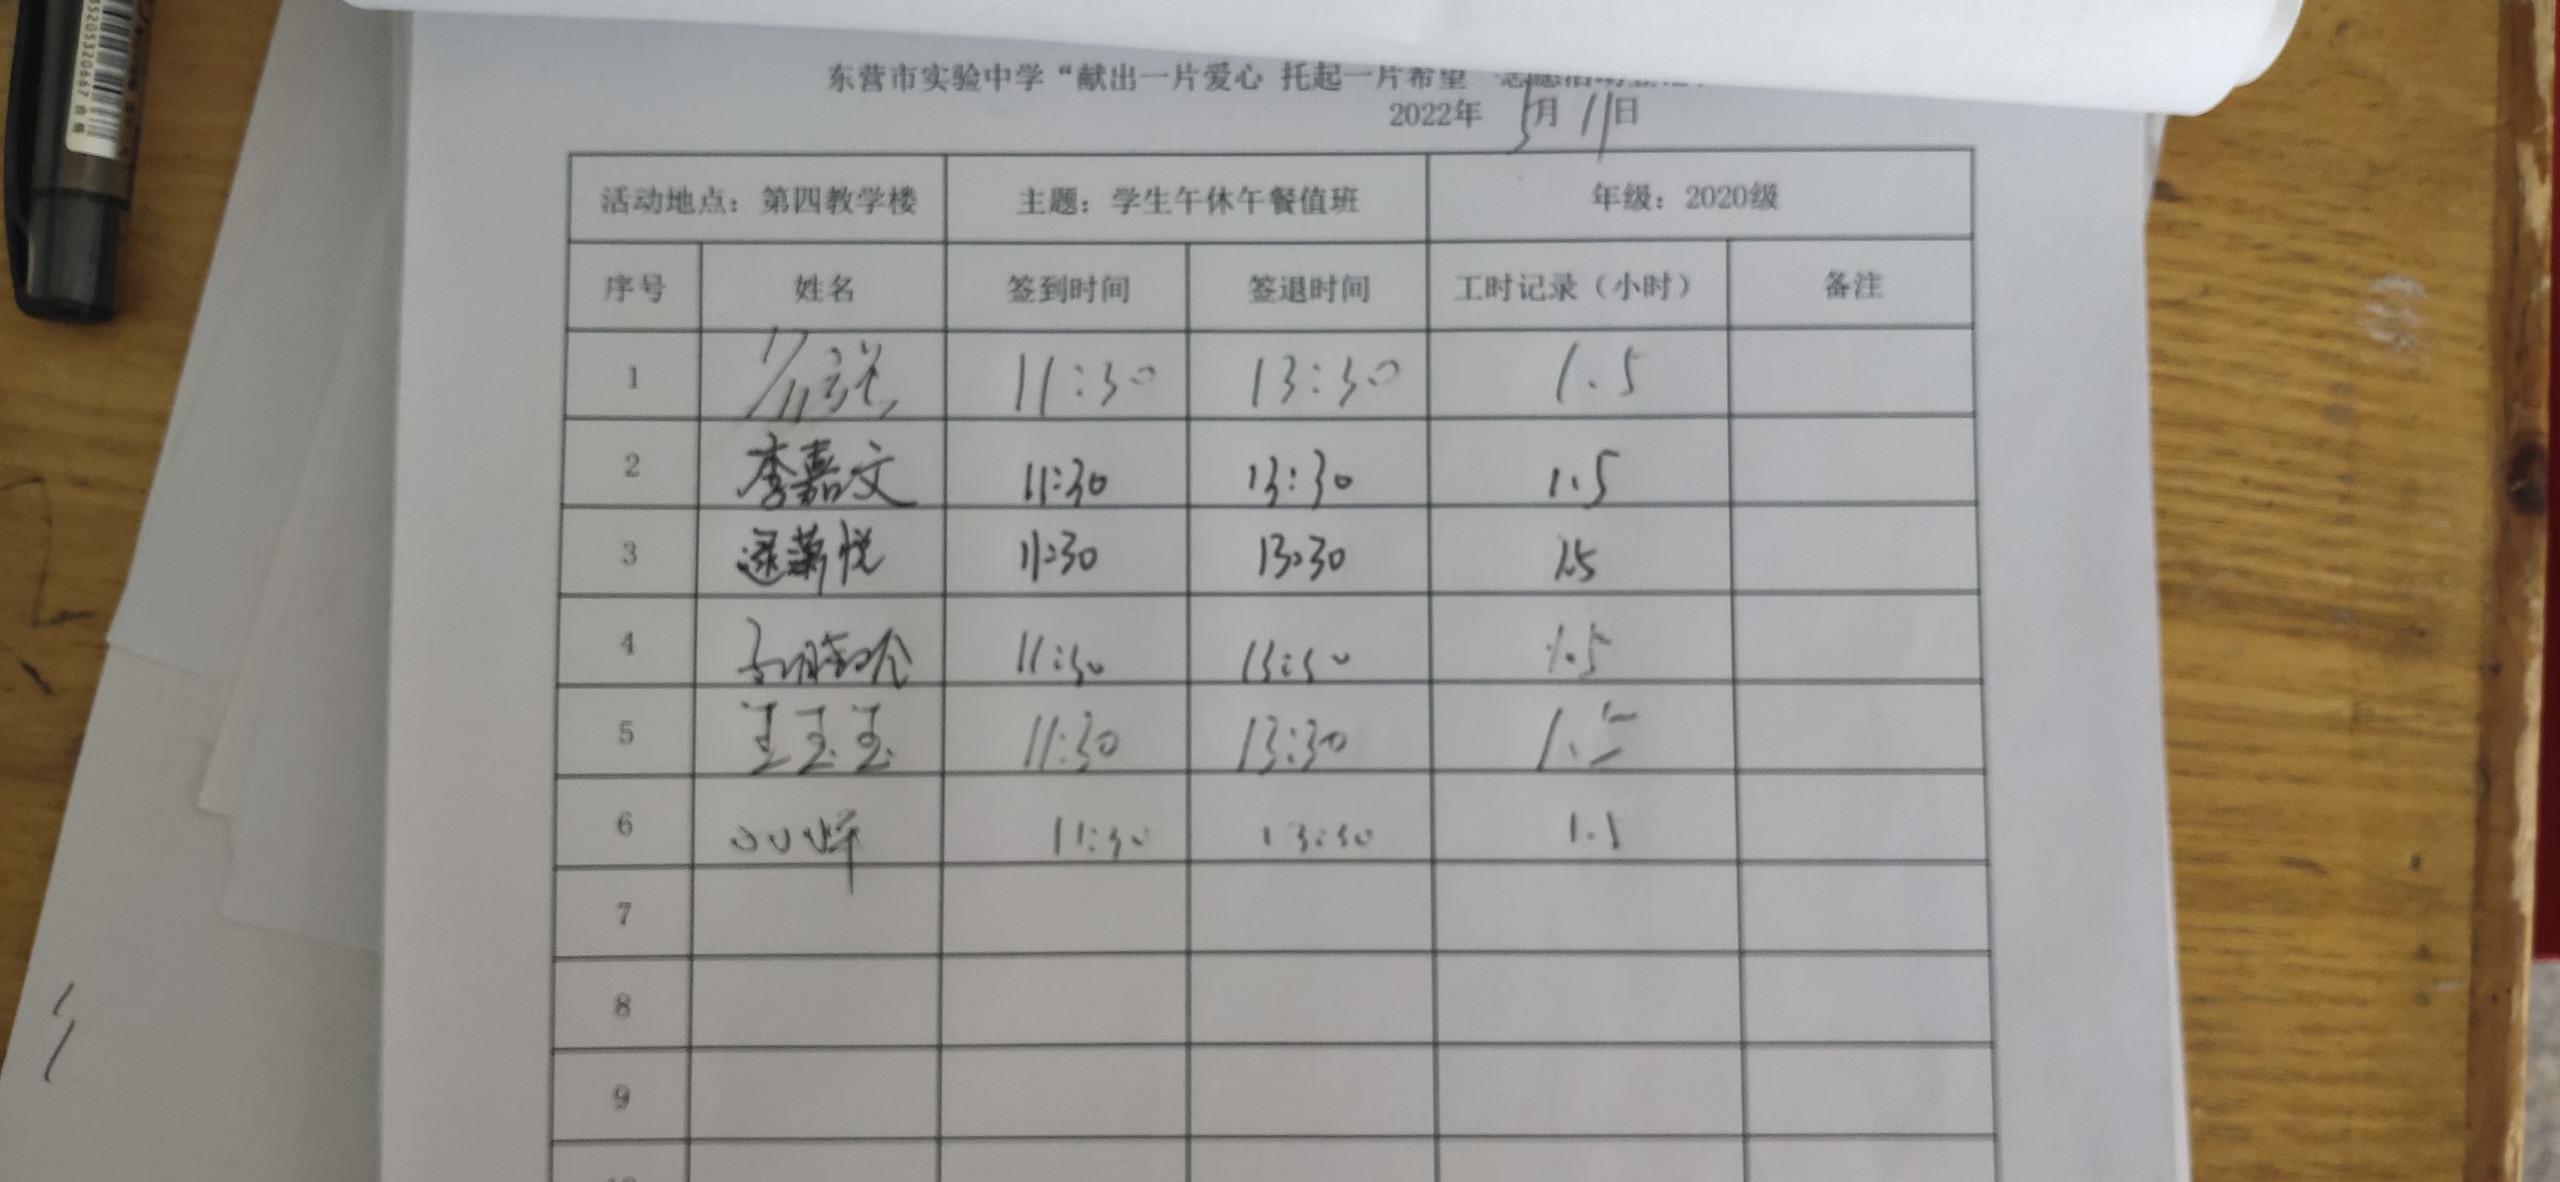 东营市实验中学“献出一片爱心 托起一片希望
2022年 月 11日
活动地点：第四教学楼 主题：学生午休午餐值班 年级：2020级
序号 姓名 签到时间 签退时间 工时记录（小时） 备注
1 11:30 13:30 1.5
2 李嘉文 11:30 13:30 1.5
3 逯薪悦 11:30 13:30 1.5
4 11:30 13:30 1.5
5 王玉玉 11:30 13:30 1.5
6 11:30 13:30 1.5
7
8
9